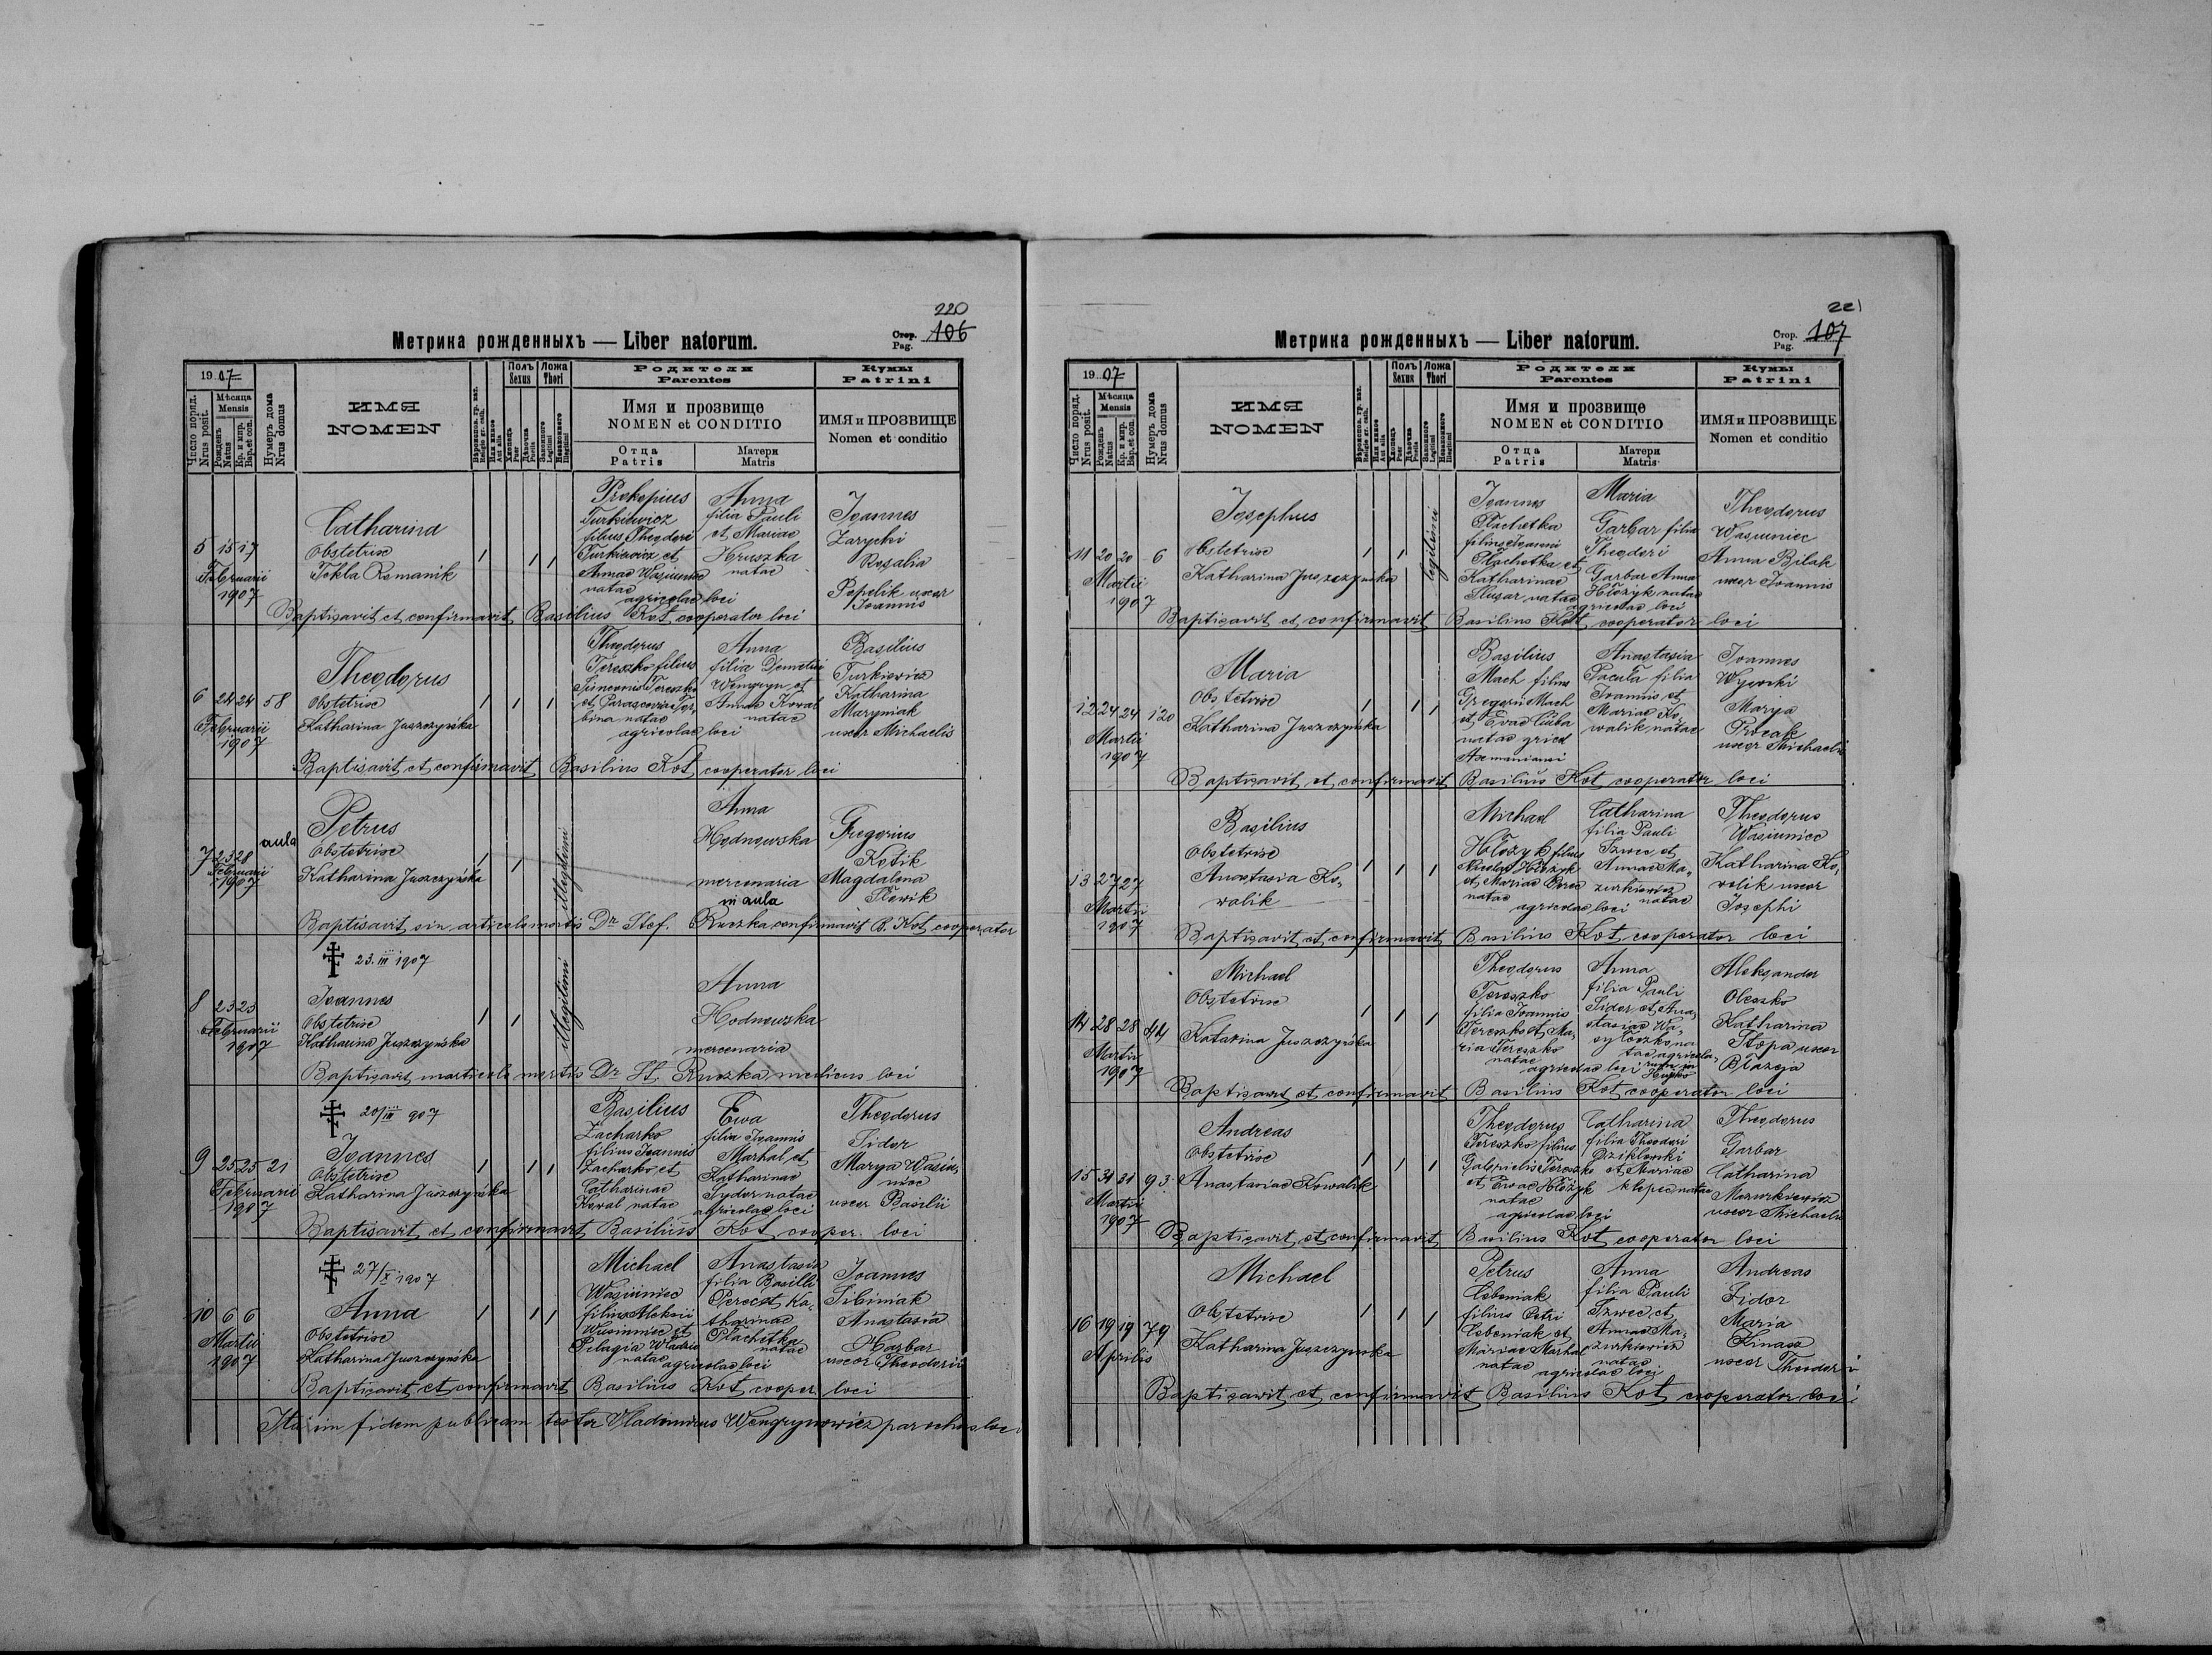 220
Метрика рожденныхъ — Liber natorum.
Стор. Pag. 106
1907
Число поряд. Nrus posit.
Мѣсяца Mensis
Рожденъ Natus
Кр. и мир. Bap. et con.
Нумеръ дома Nrus domus
ИМЯ
NOMEN
Полъ Sexus
Хлопецъ Puer
Дѣвочка Puella
Ложа Thori
Законного Legitimi
Незаконного Illegitimi
Родители
Parentes
Имя и прозвище
NOMEN et CONDITIO
Отца Patris
Матери Matris
Кумы
Patrini
ИМЯ и ПРОЗВИЩЕ
Nomen et conditio
5 15 17
Februarii
1907
Catharina
Obstetrix
Tekla Romanik
Prokopius
Turkiewicz
filius Theodori
Turkiewicz et
Annae Wasiuniec
natae
agricolae loci
Anna
filia Pauli
et Mariae
Hruszka
natae
Joannes
Zarycki
Rosalia
Popelik uxor
Joannis
Baptisavit et confirmavit Basilius Kot cooperator loci
6 24 24 58
Februarii
1907
Theodorus
Obstetrix
Katharina Juszczyńska
Theodorus
Tereszko filius
Simeonis Tereszko
et Parascevia
natae
agricolae loci
Anna
filia Demetrii
Wengryn et
Annae Kowal
natae
Basilius
Turkiewicz
Katharina
Maryniak
uxor Michaelis
Baptisavit et confirmavit Basilius Kot cooperator loci
7 23 28 aula
Februarii
1907
Petrus
Obstetrix
Katharina Juszczyńska
illegitimi
Anna
Hodnowska
mercenaria
in aula
Gregorius
Kotik
Magdalena
Slewik
Baptisavit in articulo mortis Dr Stef. Ruszka confirmavit B. Kot cooperator
23. III 1907
8 23 23
Februarii
1907
Joannes
Obstetrix
Katharina Juszczyńska
illegitimi
Anna
Hodnowska
mercenaria
Baptisavit in articulo mortis Dr St. Ruszka medicus loci
20/III 907
9 25 25 21
Februarii
1907
Joannes
Obstetrix
Katharina Juszczyńska
Basilius
Zacharko
filius Joannis
Zacharko et
Catharinae
Kowal natae
Ewa
filia Joannis
Marhal et
Katharinae
Sydor natae
agricolae loci
Theodorus
Sidor
Marya Wasiu-
niec
uxor Basilii
Baptisavit et confirmavit Basilius Kot cooper. loci
27/X 1907
10 6 6
Martii
1907
Anna
Obstetrix
Katharina Juszczyńska
Michael
Wasiuniec
filius Aleksii
Wasiuniec et
Pelagia
natae
agricolae loci
Anastasia
filia Basilii
Perec et Ka-
tharinae
Plachetka
natae
Joannes
Sibiniak
Anastasia
Harbar
uxor Theodorii
Baptisavit et confirmavit Basilius Kot cooper. loci
Ita in fidem publicam testor Vladimirus Wengrynowicz parochus loci
221
Метрика рожденныхъ — Liber natorum.
Стор. Pag. 107
1907
Число поряд. Nrus posit.
Мѣсяца Mensis
Рожденъ Natus
Кр. и мир. Bap. et con.
Нумеръ дома Nrus domus
ИМЯ
NOMEN
Полъ Sexus
Хлопецъ Puer
Дѣвочка Puella
Ложа Thori
Законного Legitimi
Незаконного Illegitimi
Родители
Parentes
Имя и прозвище
NOMEN et CONDITIO
Отца Patris
Матери Matris
Кумы
Patrini
ИМЯ и ПРОЗВИЩЕ
Nomen et conditio
11 20 20 6
Martii
1907
Josephus
Obstetrix
Katharina Juszczyńska
legitimi
Joannes
Plachetka
filius Joannis
Plachetka et
Katharinae
Slusar natae
agricolae loci
Maria
Garbar filia
Theodori
Garbar Annae
Hłożyk natae
Theodorus
Wasiuniec
Anna Bilak
uxor Joannis
Baptisavit et confirmavit Basilius Kot cooperator loci
12 24 24 120
Martii
1907
Maria
Obstetrix
Katharina Juszczyńska
Basilius
Mach filius
Gregorii Mach
et Evae
natae
Anastasia
Pacula filia
Joannis et
Mariae Ko-
walik natae
Joannes
Wysocki
Marya
Procak
uxor Michaelis
Baptisavit et confirmavit Basilius Kot cooperator loci
13 27 27
Martii
1907
Basilius
Obstetrix
Anastasia Ko-
walik
Michael
Hłożyk filius
Nicolai Hłożyk
et Mariae Perec
natae
agricolae loci
Catharina
filia Pauli
Szwec et
Annae Ma-
zurkiewicz
natae
Theodorus
Wasiuniec
Katharina Ko-
walik uxor
Josephi
Baptisavit et confirmavit Basilius Kot cooperator loci
14 28 28 44
Martii
1907
Michael
Obstetrix
Katarina Juszczyńska
Theodorus
Tereszko
filia Joannis
Tereszko et Ma-
ria Tereszko
natae
agricolae loci
Anna
filia Pauli
Sidor et Ana-
stasiae Wa-
syloczko na-
tae agricola-
Aleksander
Oleszko
Katharina
Stopa uxor
Błazeja
Baptisavit et confirmavit Basilius Kot cooperator loci
15 31 31 93
Martii
1907
Andreas
Obstetrix
Anastasiae Kowalik
Theodorus
Tereszko filius
Gabrielis Tereszko
et Evae Hłożyk
natae
agricolae loci
Catharina
filia Theodori
Dziklowski
et Mariae
klepec natae
Theodorus
Garbar
Catharina
Mazurkiewicz
uxor Michaelis
Baptisavit et confirmavit Basilius Kot cooperator loci
16 19 19 79
Aprilis
Michael
Obstetrix
Katharina Juszczynska
Petrus
Cebeniak
filius Petri
Cebeniak et
Mariae Marhal
natae
agricolae loci
Anna
filia Pauli
Szwec et
Annae Ma-
zurkiewicz
natae
Andreas
Sidor
Maria
Kinasz
uxor Theodori
Baptisavit et confirmavit Basilius Kot cooperator loci